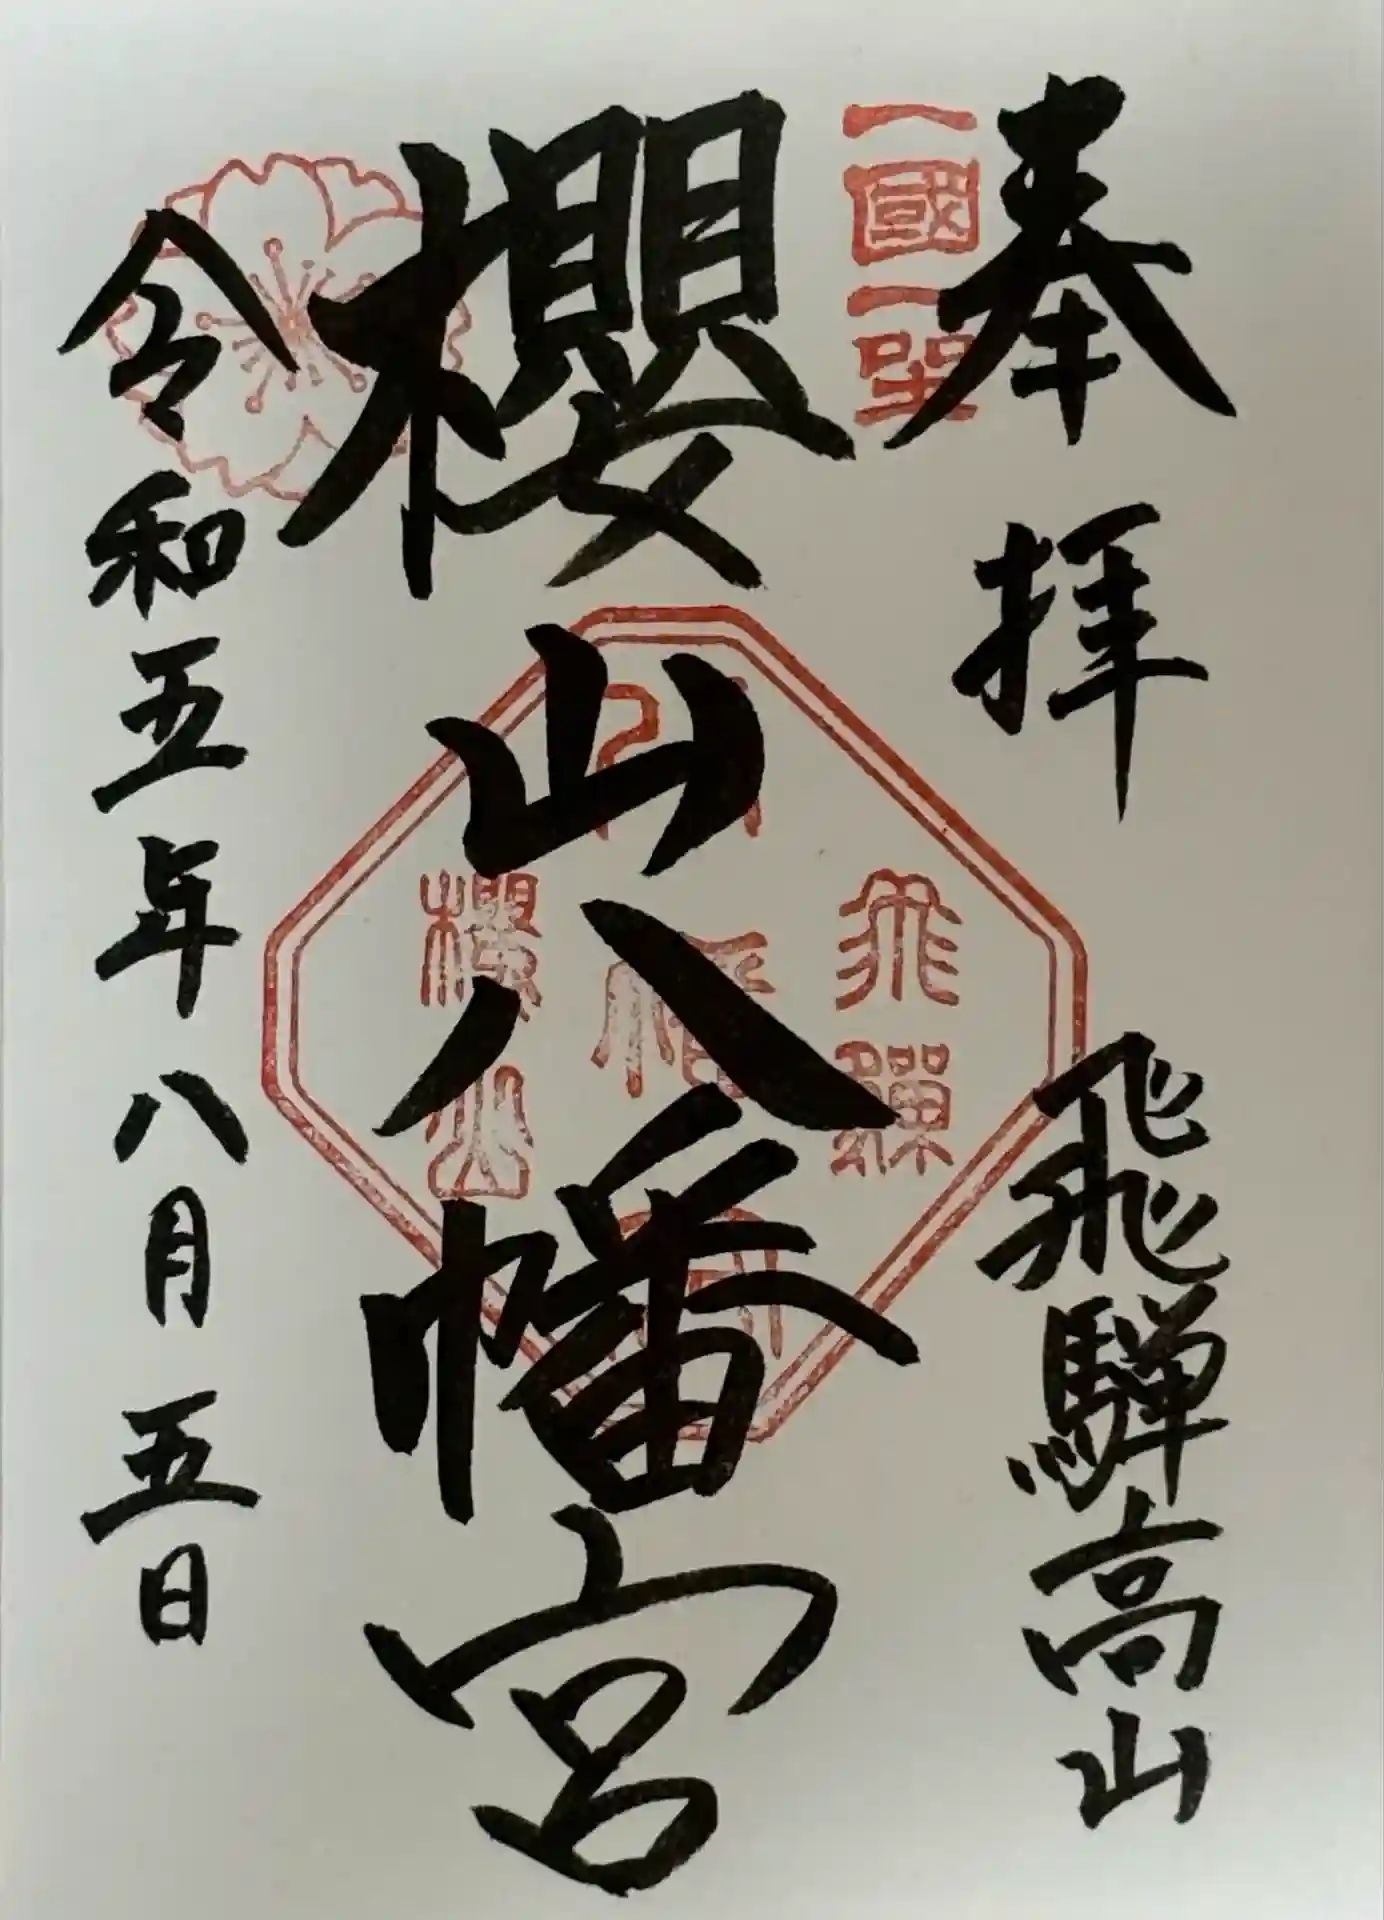 奉拝
飛騨高山
一國一
櫻山八幡宮
飛騨
八幡
櫻山
令和五年八月五日